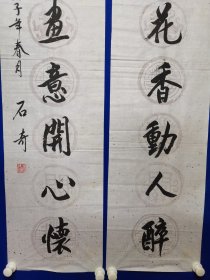 花香動人醉
畫意開心懷
子年春月
石奇